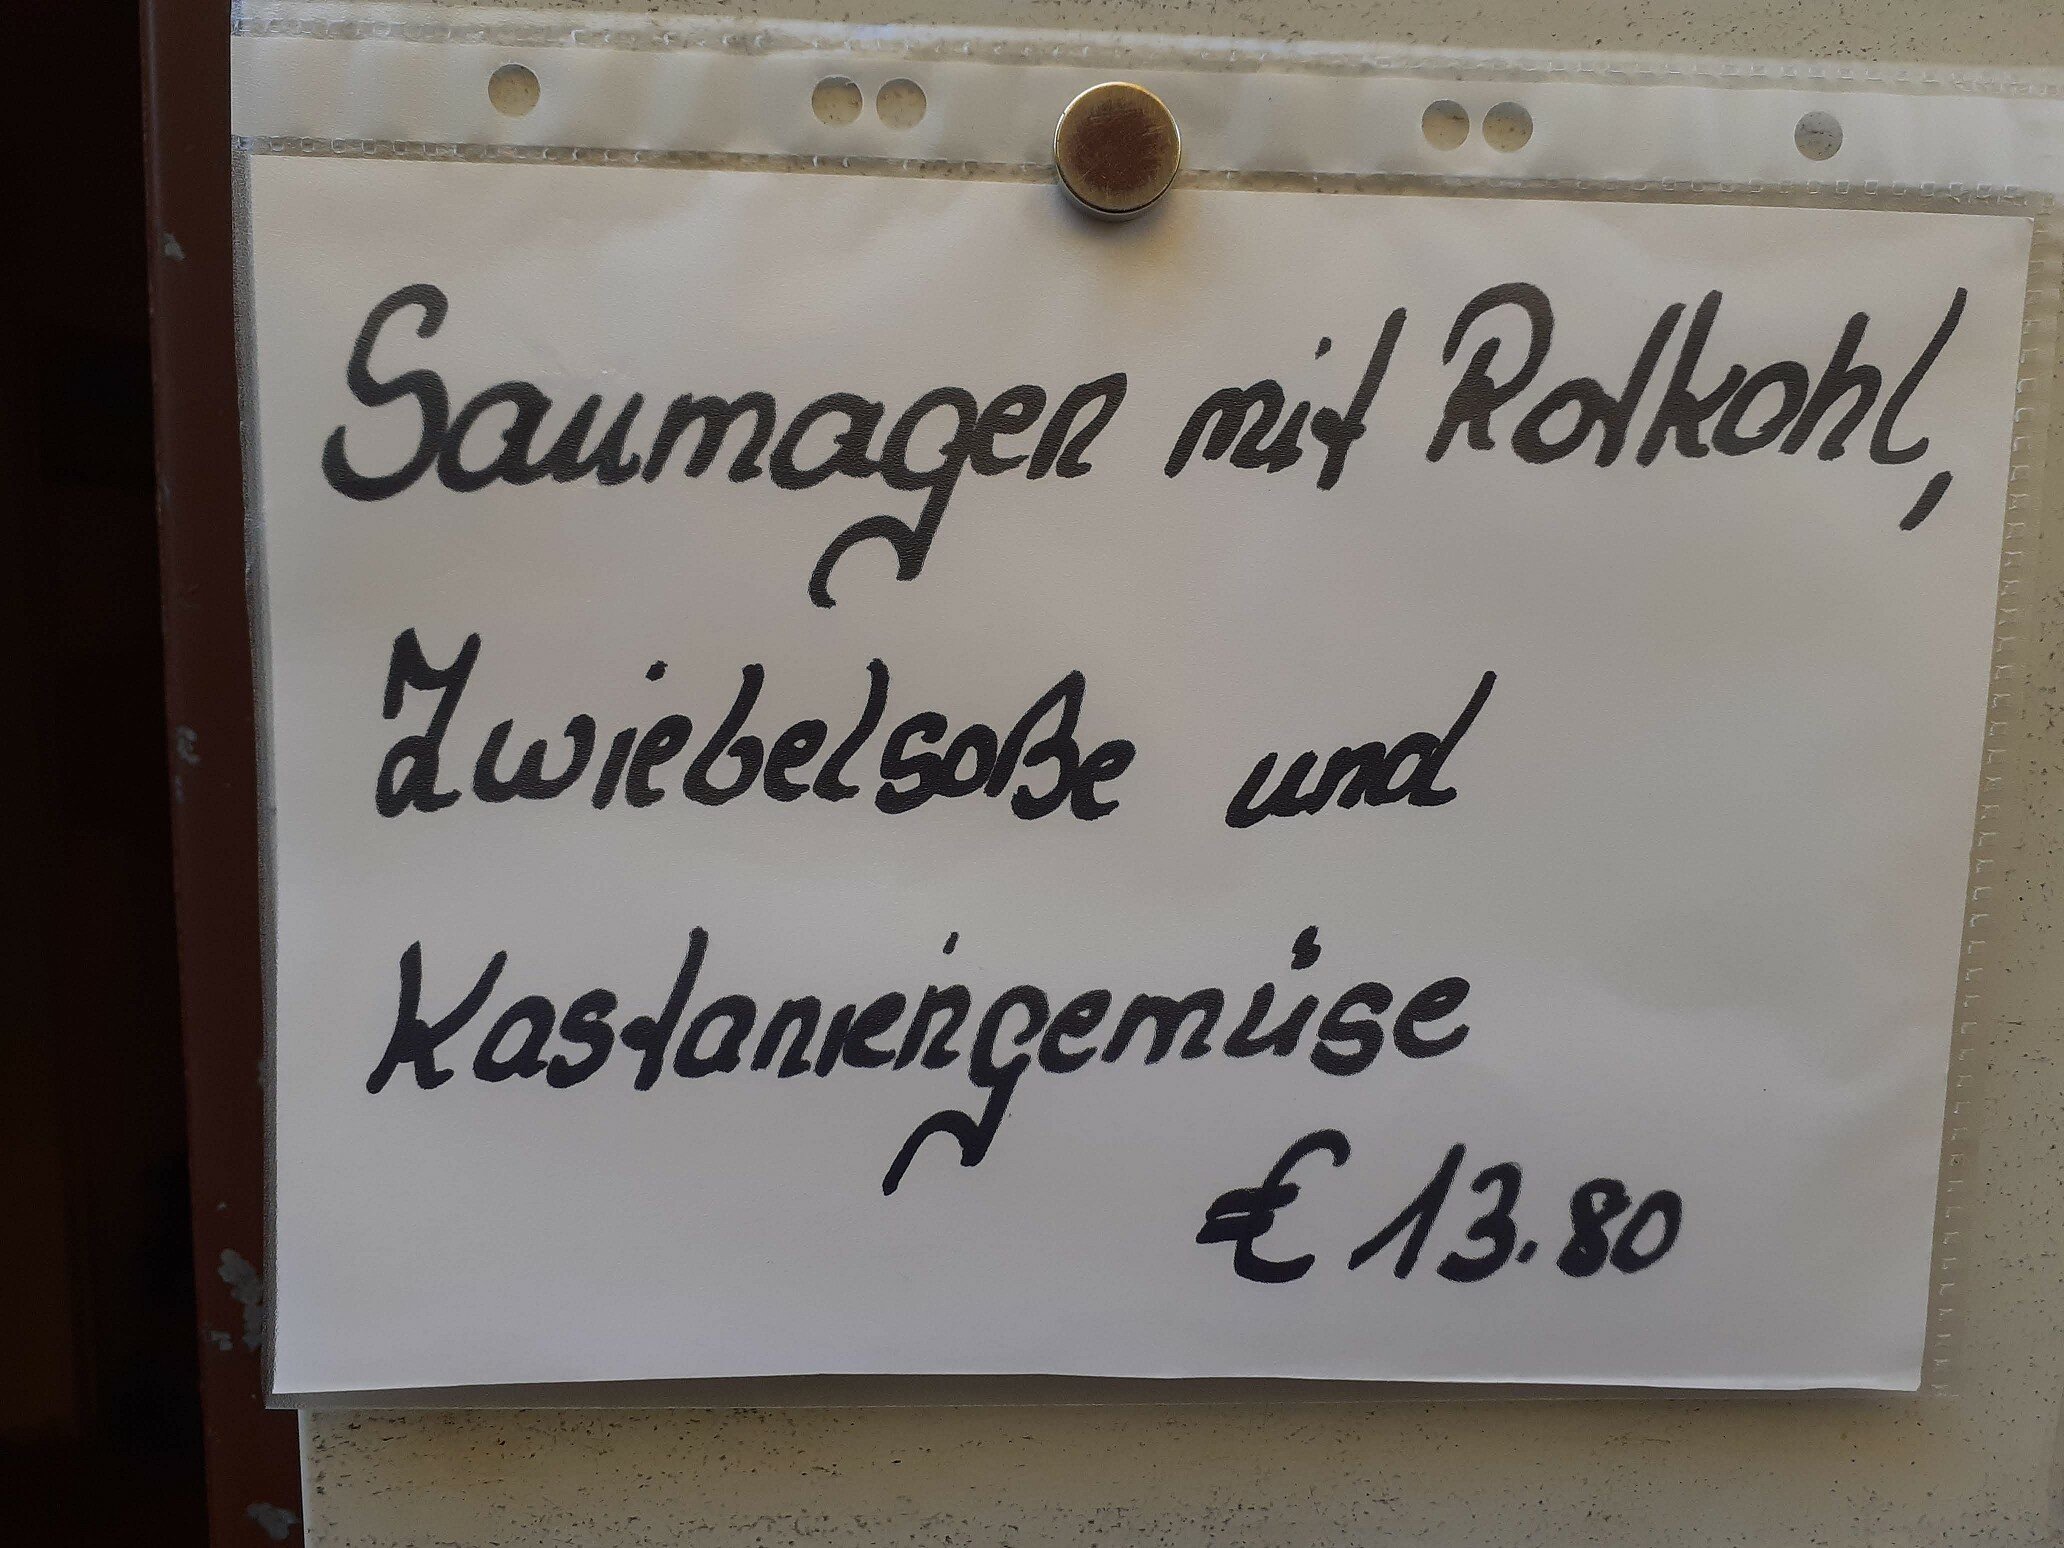 Saumagen mit Rotkohl,
Zwiebelsoße und
Kastaniengemüse
€ 13.80